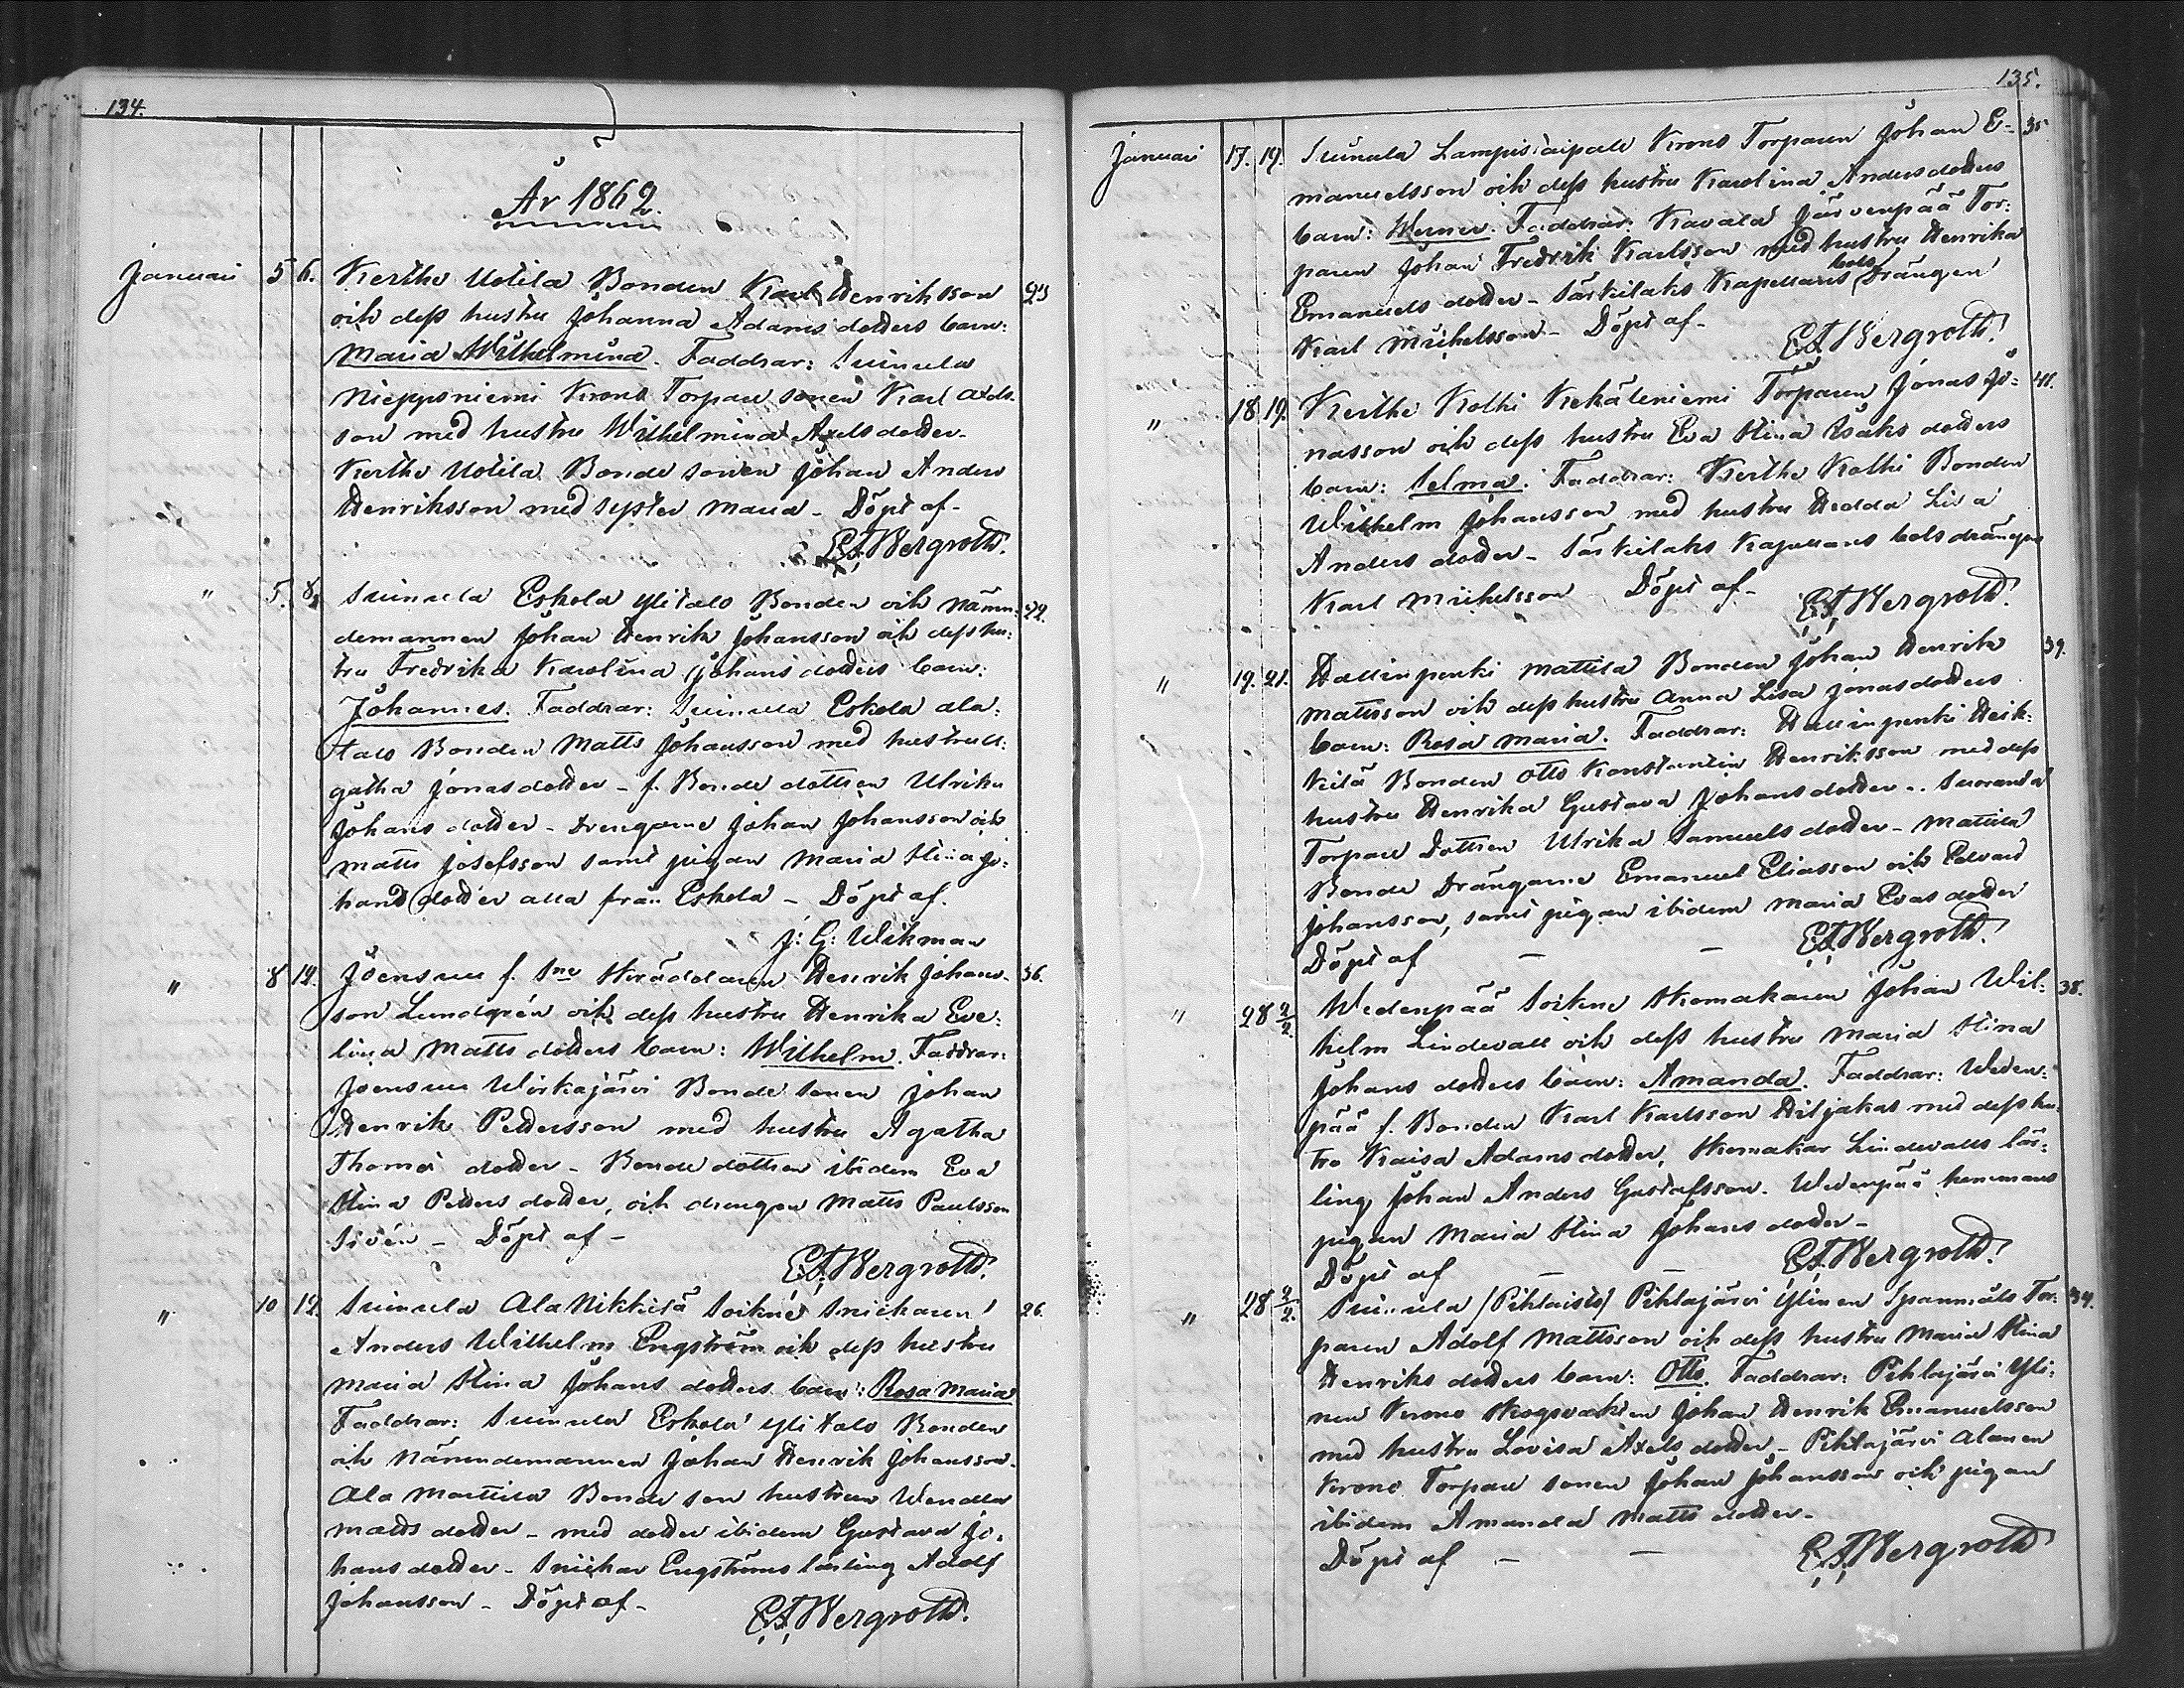 134.
År 1862.
Januari 5 6. Kertke Uotila Bonden Karl Henriksson 23
och dess hustru Johanna Adams dotters barn:
Maria Wilhelmina. Faddrar: Suinula
Niepponiemi Krono Torpare sonen Karl Axels
son med hustru Wilhelmina Axels dotter.
Kertke Uotila Bonde sonen Johan Anders
Henriksson med syster Maria - Döpt af -
E.F. Bergroth.
" 5. 8. Suinula Eskola Ylitalo Bonden och Nämn- 42.
demannen Johan Henrik Johansson och dess hu-
stru Fredrika Karolina Johans dotters barn:
Johannes. Faddrar: Suinula Eskola ala-
talo Bonden Matts Johansson med hustru A-
gatha Jonas dotter - f. Bonde dottren Ulrika
Johans dotter - Drengarne Johan Johansson och
Matts Josefsson samt pigan Maria Stina Jo-
hans dotter alla från Eskola - Döpt af.
J: G: Wikman
" 8 12. Joensuu f. Sne Skräddaren Henrik Johans- 36.
son Lundgrén och dess hustru Henrika Eve-
lina Matts dotters barn: Wilhelm. Faddrar:
Joensuu Wirkajärvi Bonde sonen Johan
Henrik Pettersson med hustru Agatha
Thomæ dotter - Bonde dottren ibidem Eva
Stina Petters dotter, och drengen Matts Paulsson
Sivén - Döpt af -
E.F. Bergroth.
" 10 12. Suinula Ala Nikkilä Sockne Snickaren 26.
Anders Wilhelm Engström och dess hustru
Maria Stina Johans dotters barn: Rosa Maria
Faddrar: Suinula Eskola Yli talo Bonden
och Nämndemannen Johan Henrik Johansson.
Ala Mattila Bonde son hustrun Wendla
Matts dotter - med dotter ibidem Gustava Jo-
hans dotter - Snickar Engströms lärling Adolf
Johansson - Döpt af -
E.F. Bergroth.
135.
Januari 17. 19. Suinula Lampisiaipale Krono Torparen Johan E- 35
manuelsson och dess hustru Karolina Anders dotters
barn: Werner. Faddrar: Kavala Järvenpää Tor-
paren Johan Fredrik Karlsson med hustru Henrika
Emanuels dotter - Särkilaks Kapellans bols Drängen
Karl Mickelsson - Döpt af -
E.F. Bergroth.
" 18 19. Kertke Kolki Kekäleniemi Torparen Jonas Jo- 41.
nasson och dess hustru Eva Stina Isaks dotters
barn: Selma. Faddrar: Kertke Kolki Bonden
Wilhelm Johansson med hustru Hedda Lisa
Anders dotter - Särkilaks Kapellans bols drängen
Karl Mickelsson - Döpt af -
E.F. Bergroth.
" 19. 21. Hallinpenki Mattila Bonden Johan Henrik 39.
Mattsson och dess hustru Anna Lisa Jonas dotters
barn: Rosa Maria. Faddrar: Hallinpenki Heik-
kilä Bonden Otto Konstantin Henriksson med dess
hustru Henrika Gustava Johans dotter - Suoranta
Torpare Dottren Ulrika Samuels dotter - Mattila
Bonde Drängarne Emanuel Eliasson och Edvard
Johansson, samt pigan ibidem Maria Evas dotter
Döpt af - - E.F. Bergroth.
" 28 2/2. Wedenpää Sockne Skomakaren Johan Wil- 38.
helm Lindevall och dess hustru Maria Stina
Johans dotters barn: Amanda. Faddrar: Weden-
pää f. Bonden Karl Karlsson Hiljakas med dess hu-
stru Kaisa Adams dotter, Skomakar Lindevalls lär-
ling Johan Anders Gustafsson. Wedenpää hemmans
pigan Maria Stina Johans dotter -
Döpt af - - E.F. Bergroth.
" 28 2/2. Suinula (Pihlaisto) Pihlajärvi Ylinen Spannmåls Tor- 34.
paren Adolf Mattsson och dess hustru Maria Stina
Henriks dotters barn: Otto. Faddrar: Pihlajärvi Yli-
nen Krono Skogvakten Johan Henrik Emanuelsson
med hustru Lovisa Axels dotter - Pihlajärvi Alanen
Krono Torpare sonen Johan Johansson och pigan
ibidem Amanda Matts dotter.
Döpt af - - E.F. Bergroth